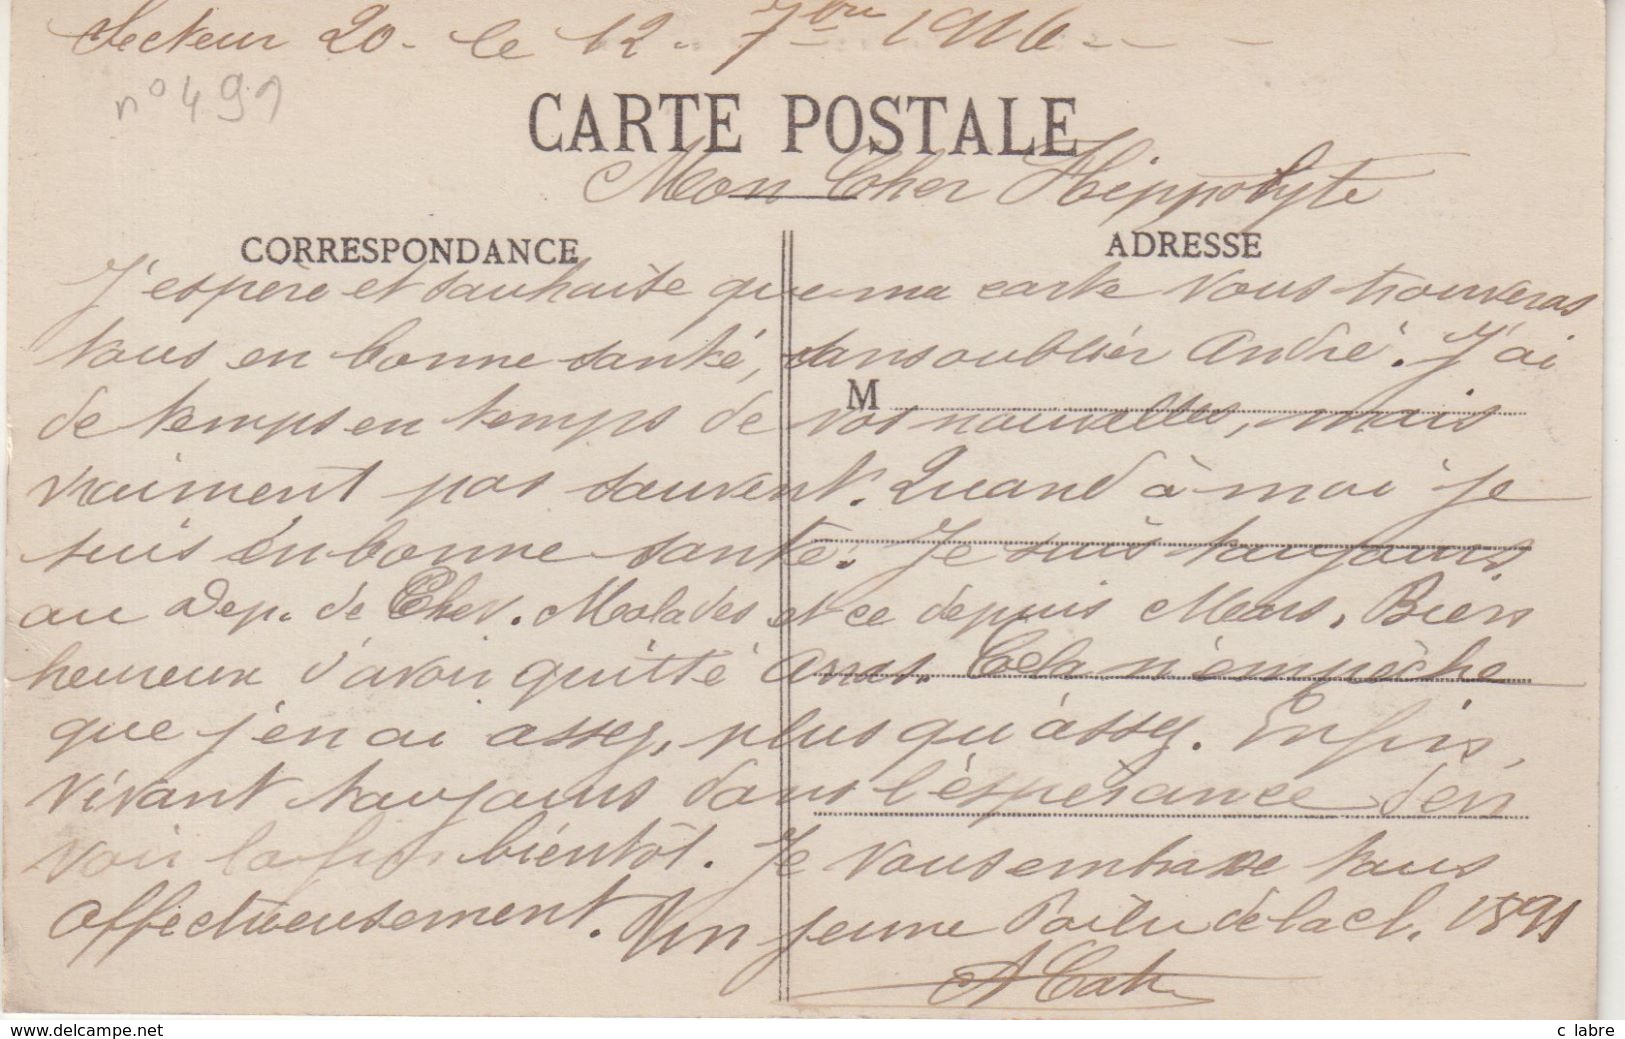 Secteur 20 - le 12 - 7bre 1916 - - -
n° 491
CARTE POSTALE
Mon Cher Hippolyte
CORRESPONDANCE ADRESSE
J'espère et souhaite que ma carte vous trouveras
tous en bonne santé, sans oublier André. J'ai
M
de temps en temps de vos nouvelles, mais
vraiment pas souvent. Quand à moi je
suis en bonne santé. Je suis toujours
au Dep. de Chev. Malades et ce depuis Mars. Bien
heureux d'avoir quitté Arras. Cela n'empêche
que j'en ai assez, plus qu'assez. Enfin,
vivant toujours dans l'espérance d'en
voir la fin bientôt. Je vous embrasse tous
affectueusement. Un jeune Poilu de la cl. 1891
www.delcampe.net
c labre